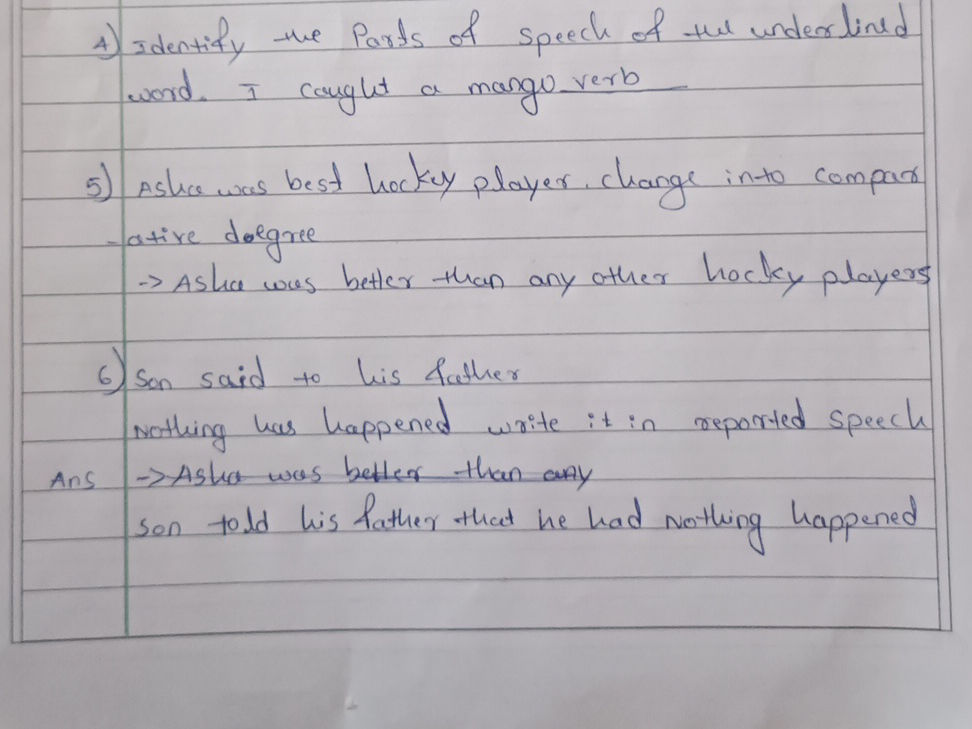 4) Identify the Parts of speech of the underlined
word. I caught a mango verb
5) Asha was best hockey player. change into compar
-ative doegree
-> Asha was better than any other hocky players
6) Son said to his father
Nothing has happened write it in reported speech
Ans -> Asha was better than any
son told his father that he had Nothing happened